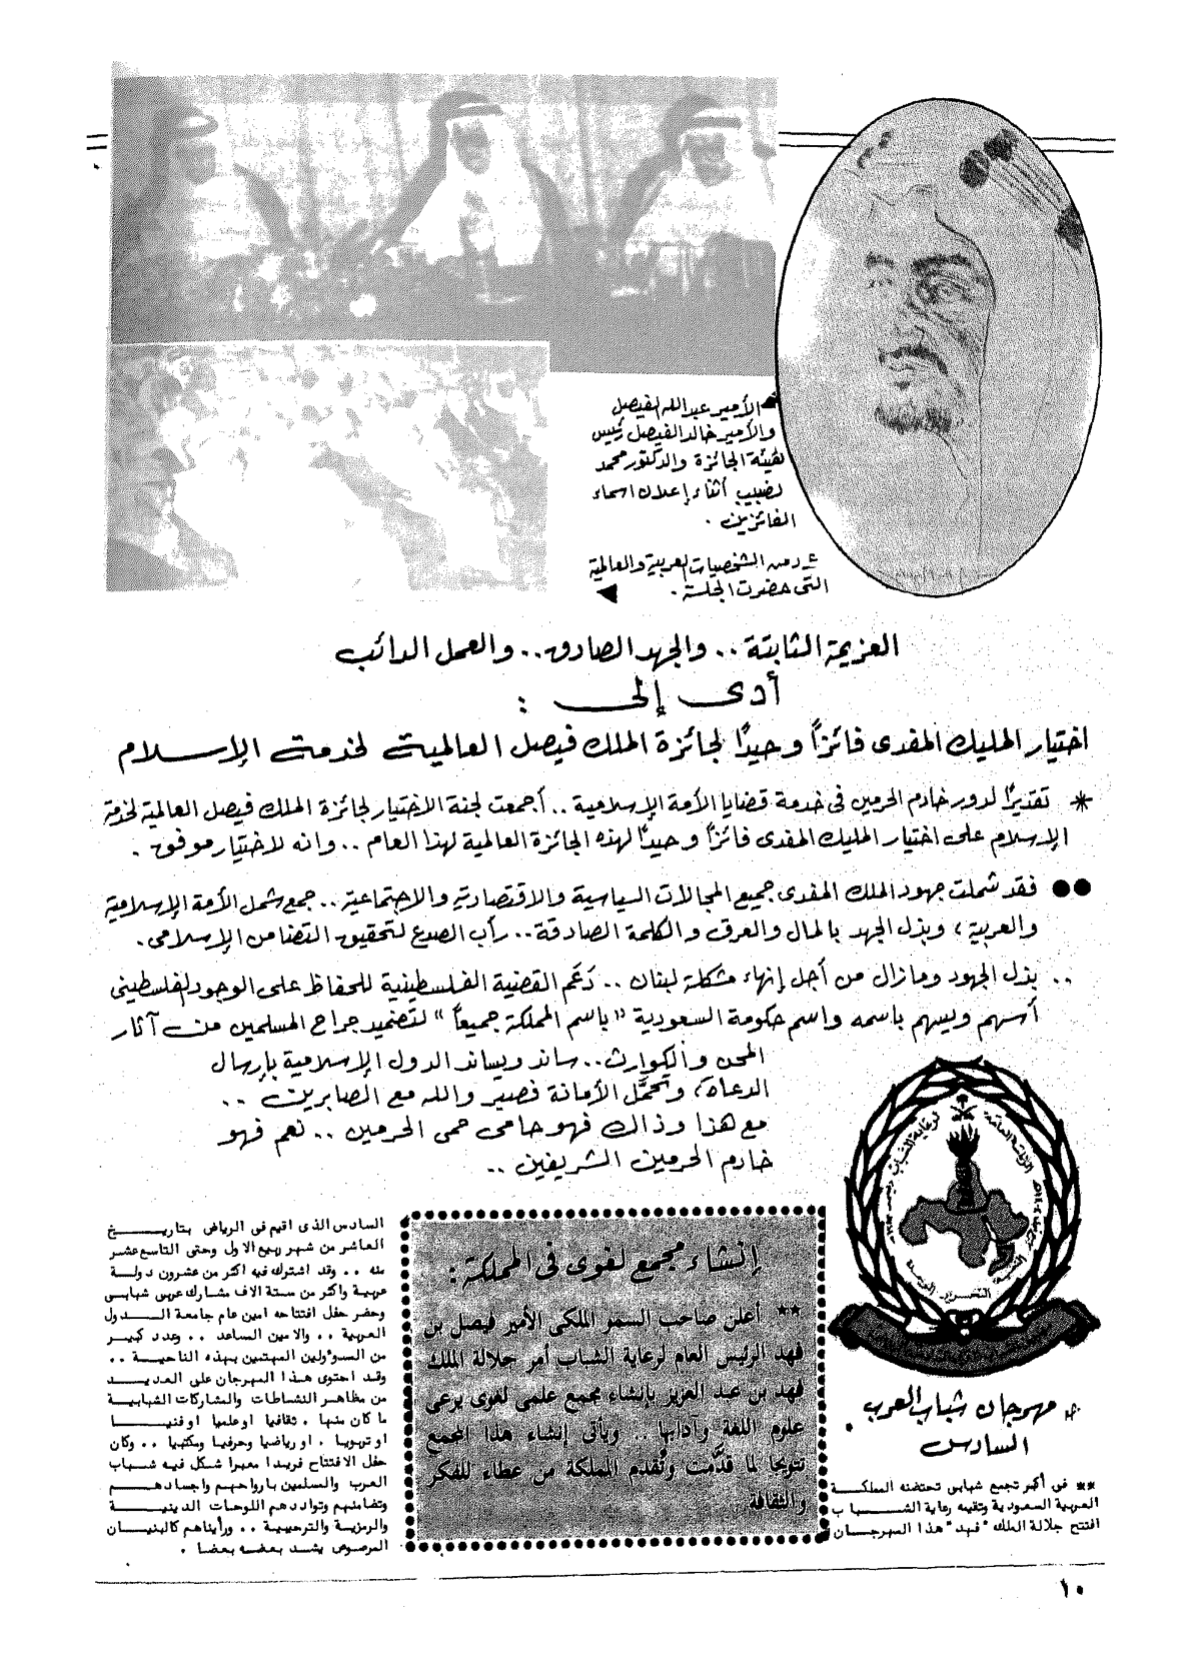 الأمير عبدالله الفيصل
والأمير خالد الفيصل رئيس
هيئة الجائزة والدكتور محمد
لضبيب أثناء إعلان اسماء
الفائزين .
عدد من الشخصيات العربية والعالمية
التى حضرت الجلسة .
العزيمة الثابتة .. والجهد الصادق .. والعمل الدائب
أدى إلى :
اختيار المليك المفدى فائزاً وحيداً لجائزة الملك فيصل العالمية لخدمة الإسلام
* تقديرًا لدور خادم الحرمين فى خدمة قضايا الأمة الإسلامية .. أجمعت لجنة الاختيار لجائزة الملك فيصل العالمية لخدمة
الإسلام على اختيار المليك المفدى فائزاً وحيداً لهذه الجائزة العالمية لهذا العام .. وانه لاختيار موفق .
●● فقد شملت جهود الملك المفدى جميع المجالات السياسية والاقتصادية والاجتماعية .. جمع شمل الأمة الإسلامية
والعربية ، وبذل الجهد بالمال والعرق والكلمة الصادقة .. رأب الصدع لتحقيق التضامن الإسلامى .
.. بذل الجهود ومازال من أجل إنهاء مشكلة لبنان .. دَعَم القضية الفلسطينية للحفاظ على الوجود الفلسطينى
أسهم ويسهم باسمه واسم حكومة السعودية "باسم المملكة جميعاً" لتضميد جراح المسلمين من آثار
المحن والكوارث .. ساند ويساند الدول الإسلامية بإرسال
الدعاة ، وتحمَّل الأمانة فصبر والله مع الصابرين ..
مع هذا وذاك فهو حامى حمى الحرمين .. نعم فهو
خادم الحرمين الشريفين ..
لرعاية الشباب
مهرجان شباب العرب
السادس .
** فى أكبر تجمع شبابى تحتضنه المملكة
العربية السعودية وتقيمه رعاية الشباب
افتتح جلالة الملك "فهد" هذا المهرجان
إنشاء مجمع لغوى فى المملكة :
** أعلن صاحب السمو الملكى الأمير فيصل بن
فهد الرئيس العام لرعاية الشباب أمر جلالة الملك
فهد بن عبد العزيز بإنشاء مجمع علمى لغوى يرعى
علوم اللغة وآدابها .. ويأتى إنشاء هذا المجمع
تتويجا لما قدَّمت وتُقدم المملكة من عطاء للفكر
والثقافة .
السادس الذى اقيم فى الرياض بتاريخ
العاشر من شهر ربيع الاول وحتى التاسع عشر
منه .. وقد اشترك فيه اكثر من عشرون دولة
عربية واكثر من ستة الاف مشارك عربى شبابى
وحضر حفل افتتاحه امين عام جامعة الدول
العربية .. والامين الساعد .. وعدد كبير
من المسؤلين المهتمين بهذه الناحية ..
وقد احتوى هذا المهرجان على العديد
من مظاهر النشاطات والمشاركات الشبابية
ما كان منها . ثقافيا او علميا او فنيا
او تربويا . او رياضيا وحرفيا ومكتبيا .. وكان
حفل الافتتاح فريدا معبرا شكل فيه شباب
العرب والمسلمين بارواحهم واجسادهم
وتضامنهم وتواددهم اللوحات الدينية
والرمزية والترحيبية .. ورأيناهم كالبنيان
المرصوص يشد بعضه بعضا .
١٠